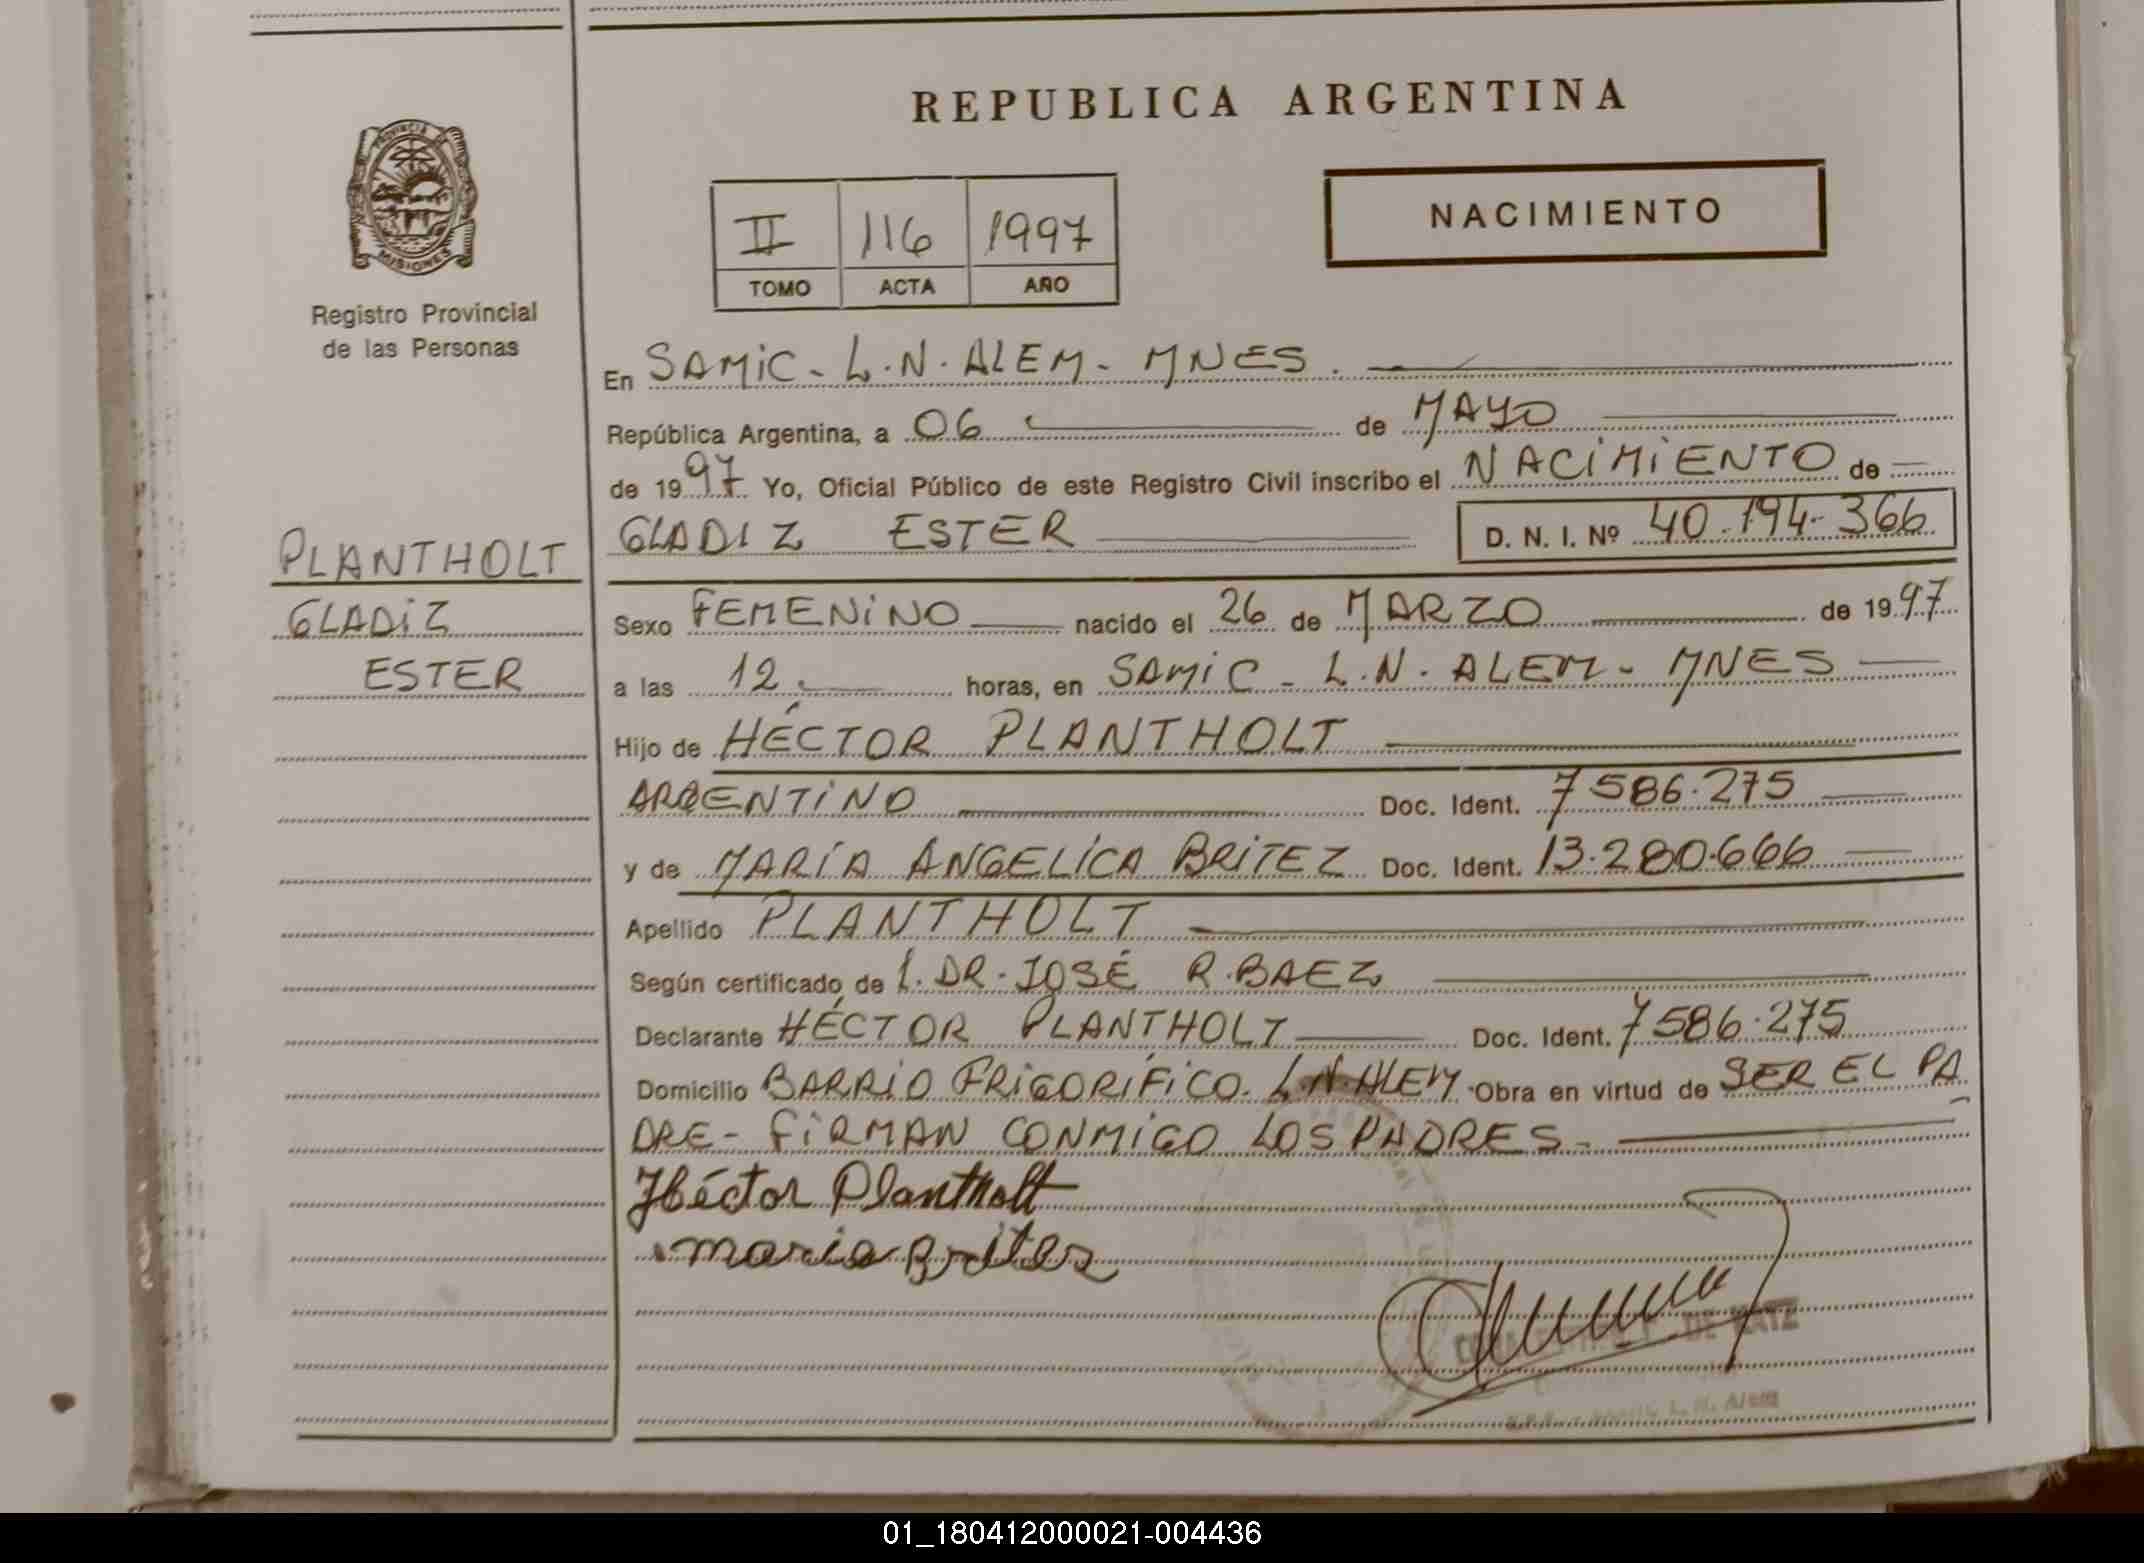 REPUBLICA ARGENTINA
PROVINCIA DE
MISIONES
Registro Provincial
de las Personas
II 116 1997
TOMO ACTA AÑO
NACIMIENTO
En SAMIC - L.N. ALEM - MNES.
República Argentina, a 06 de MAYO
de 1997 Yo, Oficial Público de este Registro Civil inscribo el NACIMIENTO de
GLADIZ ESTER D. N. I. Nº 40.194.366
PLANTHOLT
GLADIZ
ESTER
Sexo FEMENINO nacido el 26 de MARZO de 1997
a las 12 horas, en SAMIC - L.N. ALEM - MNES
Hijo de HÉCTOR PLANTHOLT
ARGENTINO Doc. Ident. 7586.275
y de MARÍA ANGELICA BRITEZ Doc. Ident. 13.280.666
Apellido PLANTHOLT
Según certificado de L. DR. JOSÉ R. BAEZ
Declarante HÉCTOR PLANTHOLT Doc. Ident. 7586.275
Domicilio BARRIO FRIGORÍFICO. L.N. ALEM Obra en virtud de SER EL PA
DRE - FIRMAN CONMIGO LOS PADRES -
Héctor Plantholt
maria Britez
DE KATZ
L. N. Alem
01_180412000021-004436